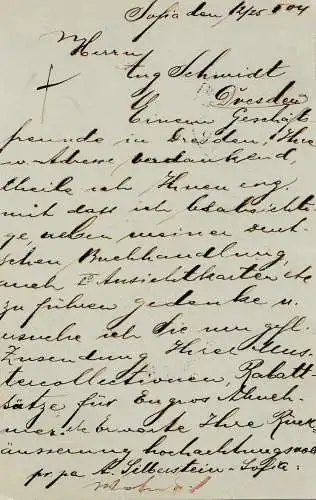 Sofia den 12/25 5 04
Herrn
Aug Schmidt
Dresden
Einem Geschäfts
freunde in Dresden, Ihre
w. Adresse verdankend,
theile ich Ihnen erg.
mit dass ich beabsichti-
ge neben meiner deut-
schen Buchhandlung,
auch Ansichtkarten etc
zu führen gedenke u.
ersuche ich Sie um gefl.
Zusendung Ihrer Mus-
tercollectionen, Rabatt-
sätze für Engros Abneh-
mer etc Erwarte Ihre Rück-
äusserung hochachtungsvoll
pr. pa A. Silberstein - Sofia.